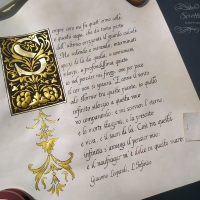 S
empre caro mi fu quest'ermo colle
e questa siepe, che da tanta parte
dell'ultimo orizzonte il guardo esclude.
Ma sedendo e mirando, interminati
spazi di là da quella, e sovrumani
silenzi, e profondissima quiete
io nel pensier mi fingo; ove per poco
il cor non si spaura. E come il vento
odo stormir tra queste piante, io quello
infinito silenzio a questa voce
vo comparando: e mi sovvien l'eterno,
e le morte stagioni, e la presente
e viva, e il suon di lei. Così tra questa
infinità s'annega il pensier mio:
e il naufragar m'è dolce in questo mare.
Giacomo Leopardi, L'Infinito